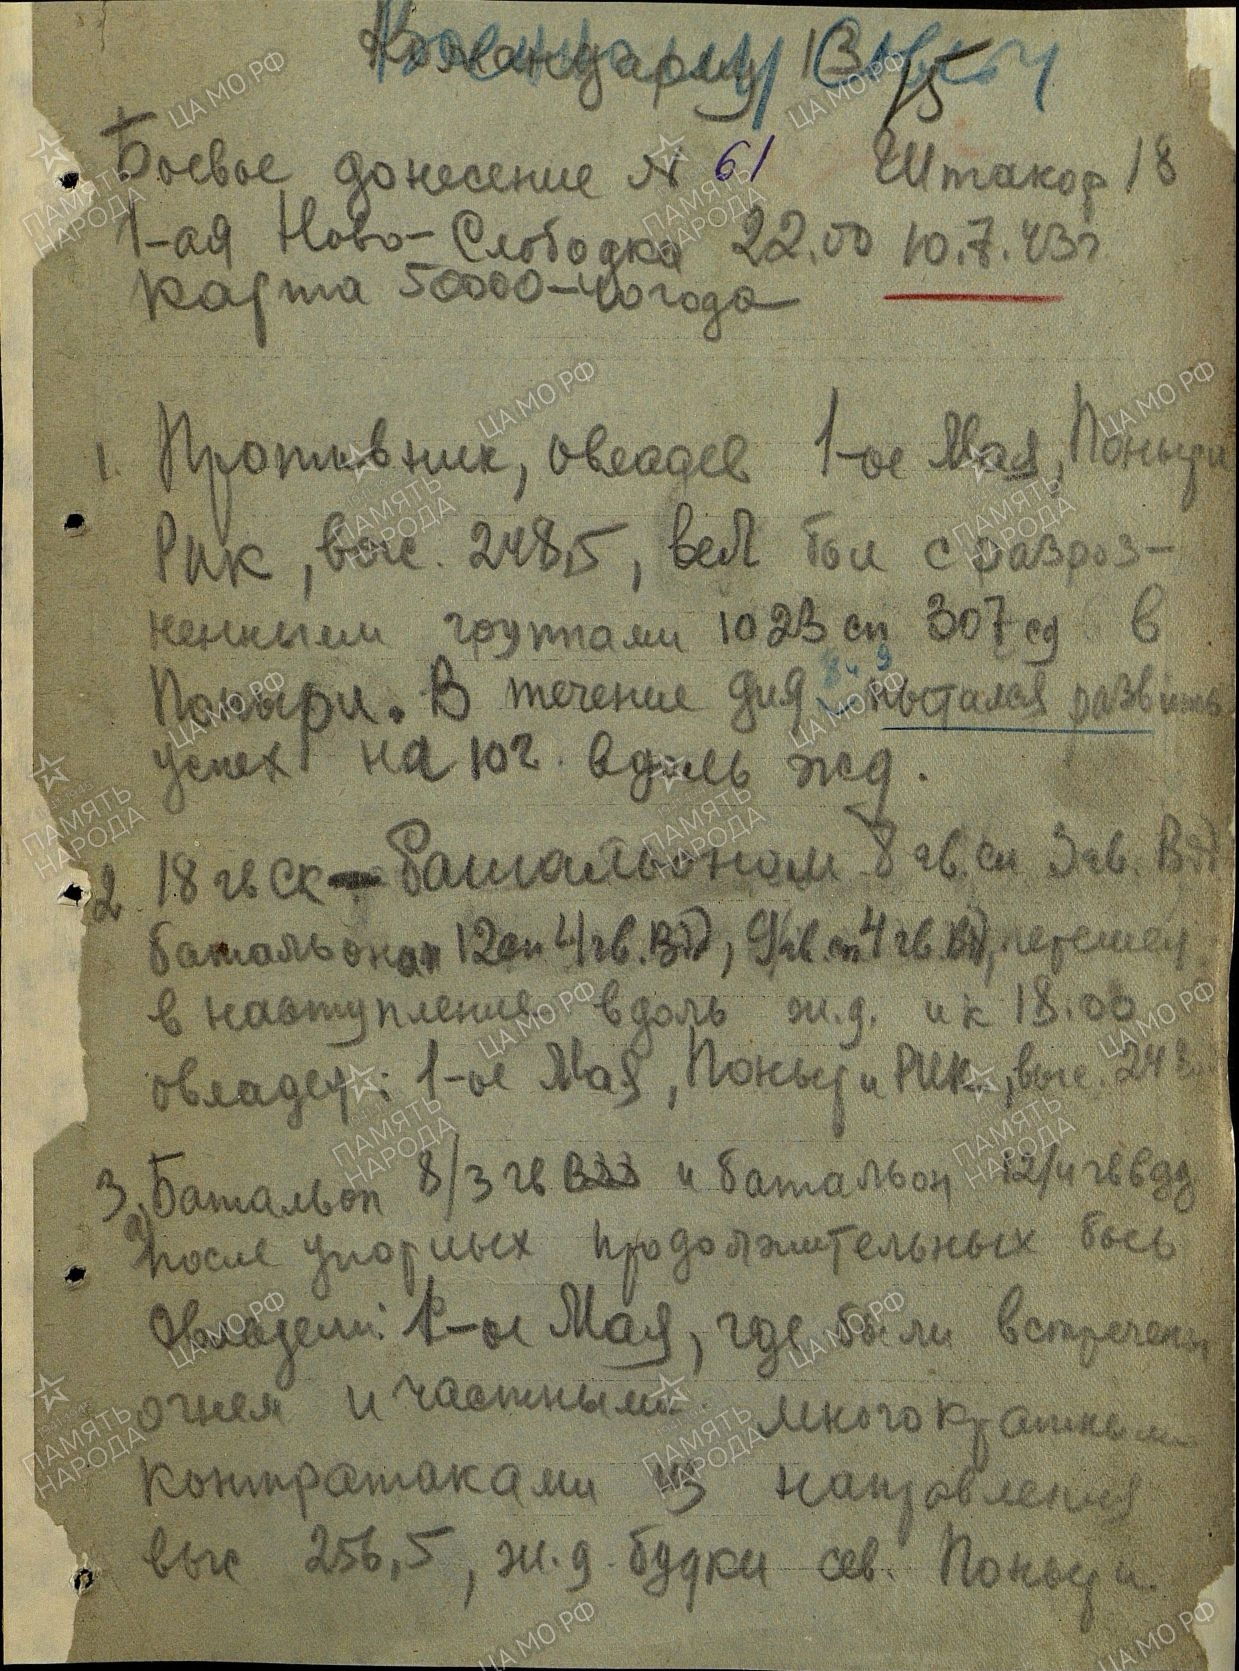 Командарму 13
75
Боевое донесение № 61 Штакор 18
1-ая Ново-Слободка 22.00 10.7.43г.
карта 50000-40 года
1. Противник, овладев 1-ое Мая, Поныри
РИК, выс. 248,5, вел бои с разроз-
ненными группами 1023 сп 307 сд в
8 и 9
Поныри. В течение дня пытался развить
успех на юг вдоль жд.
2 18 гв ск - батальоном 8 гв. сп 3 гв. ВДД
батальоном 12 сп 4 гв. ВДД, 9 гв. сп 4 гв. ВДД, перешел
в наступление вдоль ж.д. и к 18.00
овладел: 1-ое Мая, Поныри РИК, выс. 248
3. Батальон 8/3 гв ВДД и батальон 12/4 гв вдд
а) после упорных продолжительных боев
Овладели: 1-ое Мая, где были встречены
огнем и частными многократными
контратаками из направления
выс 256,5, ж.д. будки сев. Поныри.